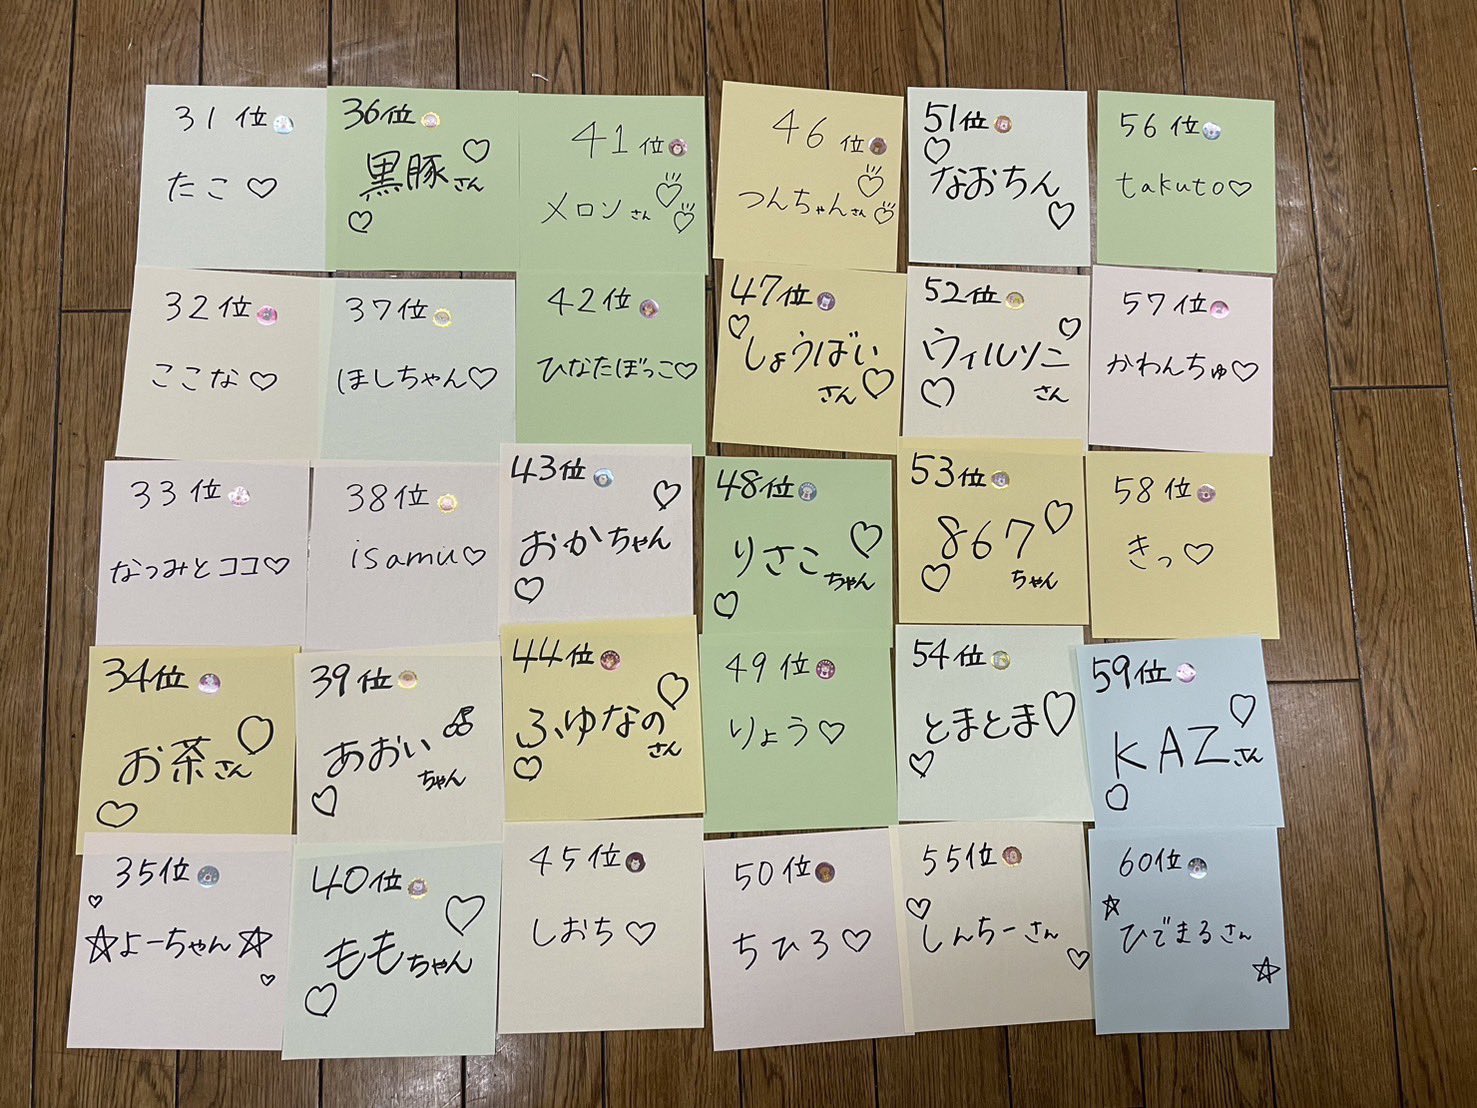 31位
たこ♡
32位
ここな♡
33位
なつみとココ♡
34位
お茶さん
35位
☆よーちゃん☆
36位
黒豚さん
37位
ほしちゃん♡
38位
isamu♡
39位
あおいちゃん
40位
ももちゃん
41位
メロンさん
42位
ひなたぼっこ♡
43位
おかちゃん
44位
ふゆなのさん
45位
しおち♡
46位
つんちゃんさん
47位
しょうばい
さん♡
48位
りさこちゃん
49位
りょう♡
50位
ちひろ♡
51位
なおちん
52位
ウィルソニ
さん
53位
867
ちゃん
54位
とまとま♡
55位
しんちーさん
56位
takuto♡
57位
かわんちゅ♡
58位
きっ♡
59位
KAZさん
60位
ひでまるさん